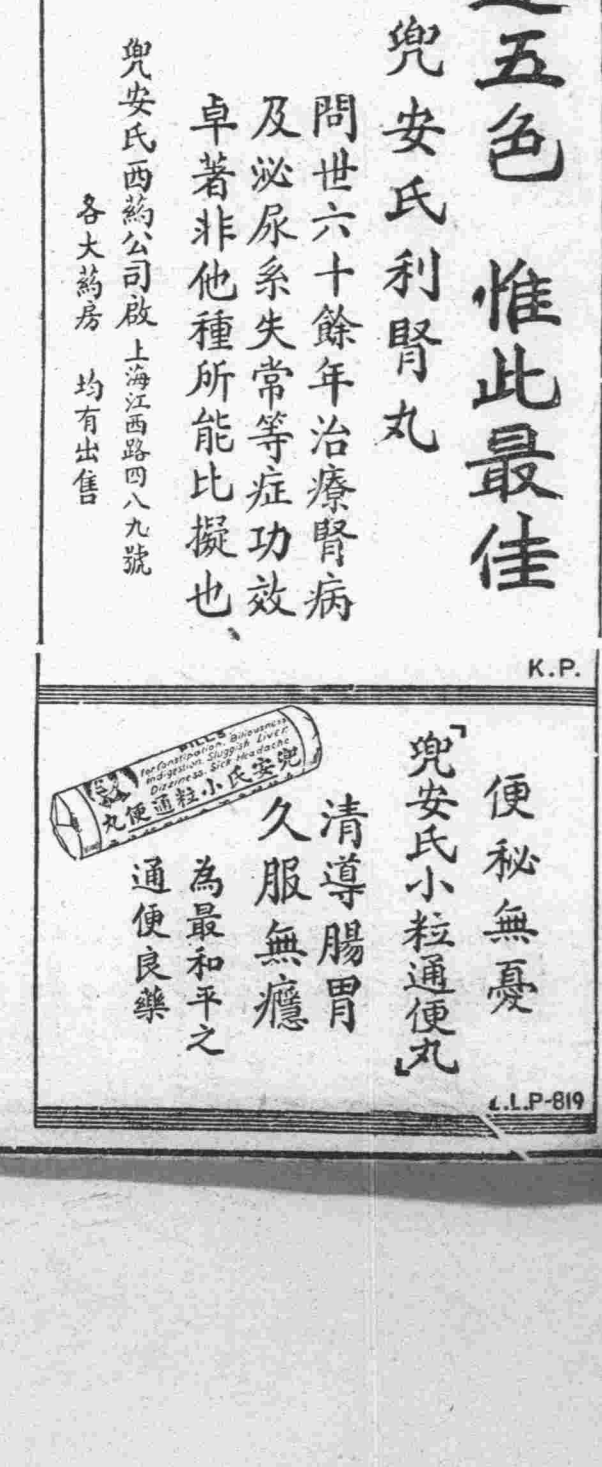 五色 惟此最佳
兜安氏利腎丸
問世六十餘年治療腎病
及泌尿系失常等症功效
卓著非他種所能比擬也、
兜安氏西葯公司啟 上海江西路四八九號
各大葯房 均有出售
K.P.
便秘無憂
「兜安氏小粒通便丸」
清導腸胃
久服無癮
為最和平之
通便良藥
PILLS
For Constipation, Biliousness
Indigestion, Sluggish Liver
Dizziness, Sick Headache
兜安氏小粒通便丸
L.P-819